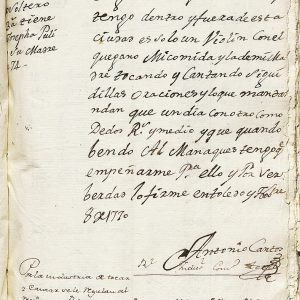 Soltero
Mantiene
Josepha Pulí
Su Madre
74-
tengo dentro y fuera de esta
ciudad es solo un Violín Con el
que gano Mi comida y la de mi Ma
dre tocando y Cantando Sigui
dillas Oraciones y lo que me man
dan que un dia Con otro como
De dos Rs. y medio y que quando
bendo Al Manaques tengo q
empeñarme Pra ello y Por Ver
berdad lo firmé en toledo y
8 de 1770
Antonio Cantos
Por la industria de tocar
y Cantar se le Regulan al